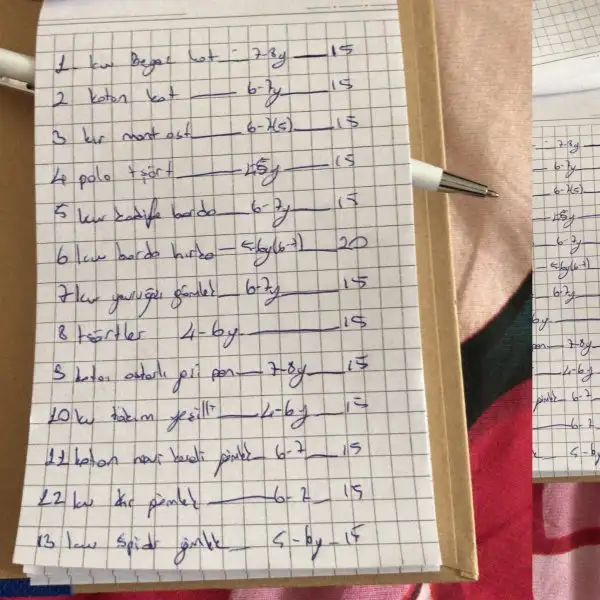 1 kız Beyaz kot - 7-8y — 15
2 koton kot — 6-7y — 15
3 kız mont — 6-7(5) — 15
4 polo tşört — 45y — 15
5 kız kadife bordo — 6-7y — 15
6 kız bordo hırka — 5-6y(6-7) — 20
7 kız gömlek — 6-7y — 15
8 tşörtler 4-6y — 15
9 koton astarlı pan — 7-8y — 15
10 kız takım yeşilli — 4-6y — 15
11 koton mavi gömlek — 6-7 — 15
12 kız gömlek — 6-7 — 15
13 kız Spidr gömlek — 5-6y — 15
7-8y
6-7y
6-7(5)
45y
6-7y
5-6y(6-7)
6-7y
6y
7-8y
4-6y
6-7
6-7
5-6y